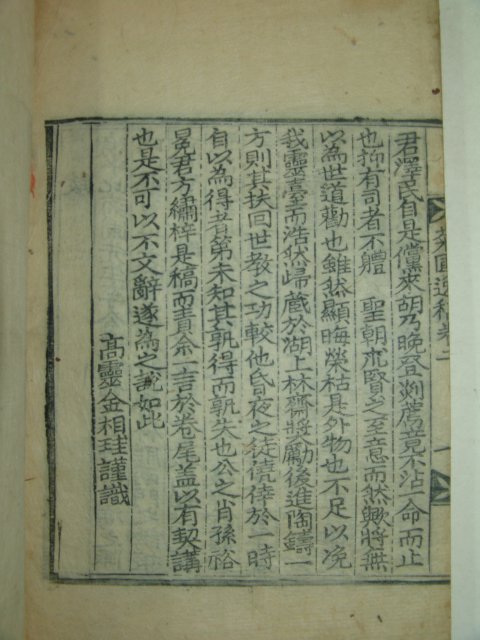 君澤民自是儻來胡乃晚登剡薦竟不沾一命而止
也抑有司者不軆　聖朝求賢之至意而然歟將無
以為世道勸也雖然顯晦榮枯是外物也不足以浼
我靈臺而浩然歸藏於湖上林齋奬勵後進陶鑄一
方則其扶回世教之功較他昏夜之徒僥倖於一時
自以為得者第未知其孰得而孰失也公之肖孫裕
冕君方繡梓是稿而責余一言於卷尾盖以有契講
也是不可以不文辭遂為之說如此
高靈金相珪謹識